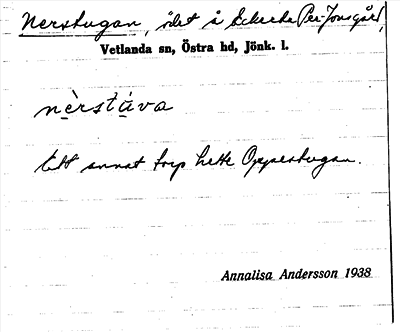 Nerstugan, ödet å Per-Jonsgård,
Vetlanda sn, Östra hd, Jönk. l.
nè̠rstá̠va
Ett annat torp hette Opperstugan.
Annalisa Andersson 1938